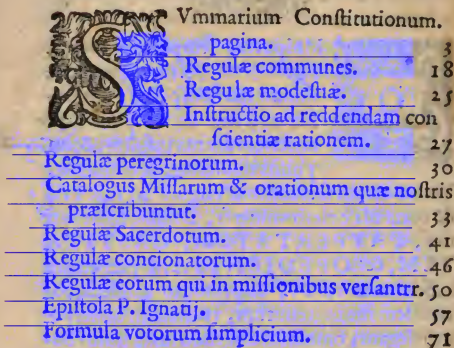 SVmmarium Conſtitutionum.
pagina. 3
Regulæ communes. 18
Regulæ modeſtiæ. 25
Inſtructio ad reddendam con
ſcientiæ rationem. 27
Regulæ peregrinorum. 30
Catalogus Miſſarum & orationum quæ noſtris
præſcribuntur. 33
Regulæ Sacerdotum. 41
Regulæ concionatorum. 46
Regulæ eorum qui in miſſionibus verſantrr. 50
Epiſtola P. Ignatij. 57
Formula votorum ſimplicium. 71